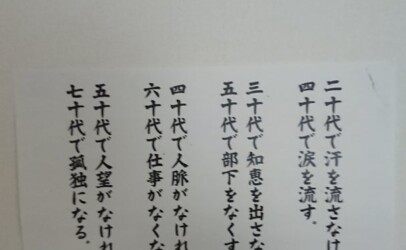 二十代で汗を流さなけ
四十代で涙を流す。
三十代で知恵を出さな
五十代で部下をなくす
四十代で人脈がなけれ
六十代で仕事がなくな
五十代で人望がなけれ
七十代で孤独になる。